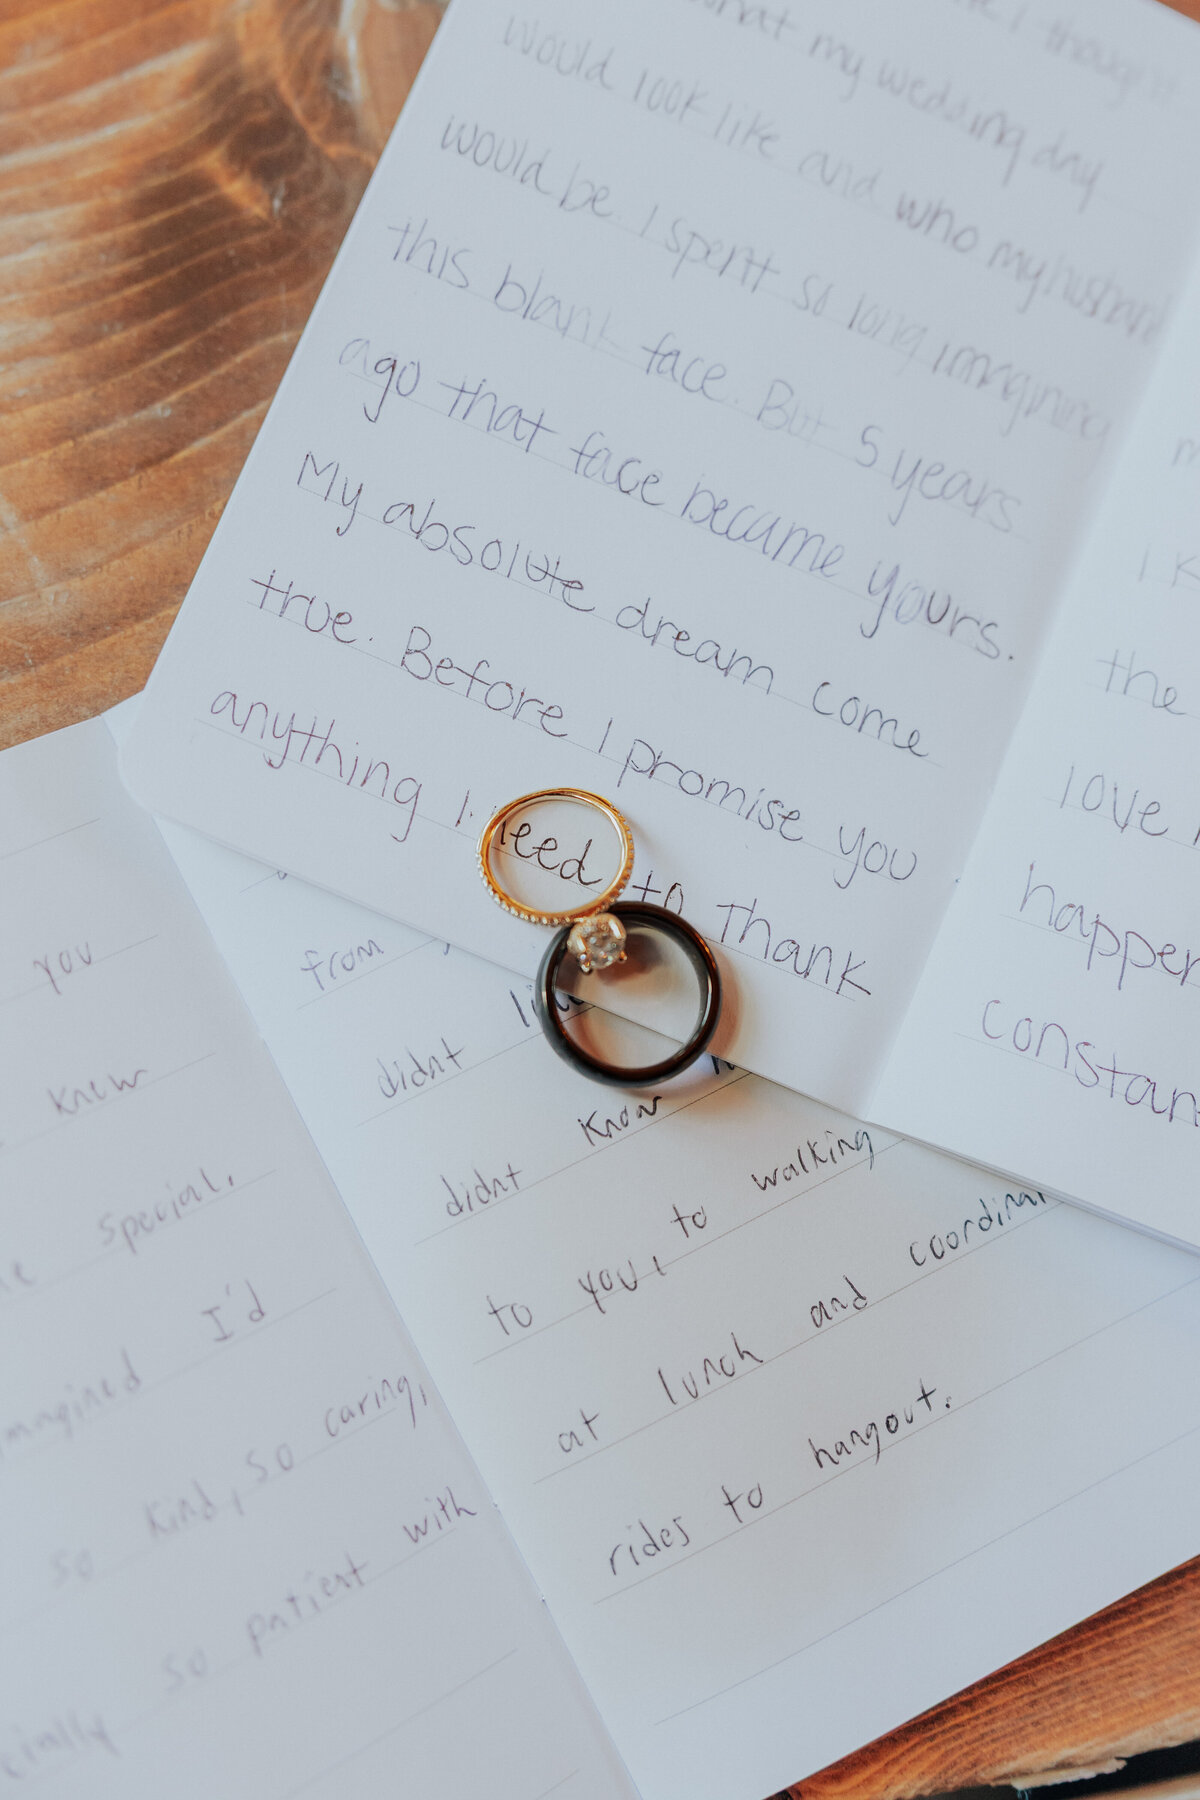 I thought
what my wedding day
would look like and who my husband
would be. I spent so long imagining
this blank face. But 5 years
ago that face became yours.
My absolute dream come
true. Before I promise you
anything I need to thank
I k
the
love
happen
constan
you
knew
special,
imagined I'd
so kind, so caring,
so patient with
cially
from
didnt
didnt know
to you, to walking
at lunch and coordinat
rides to hangout.